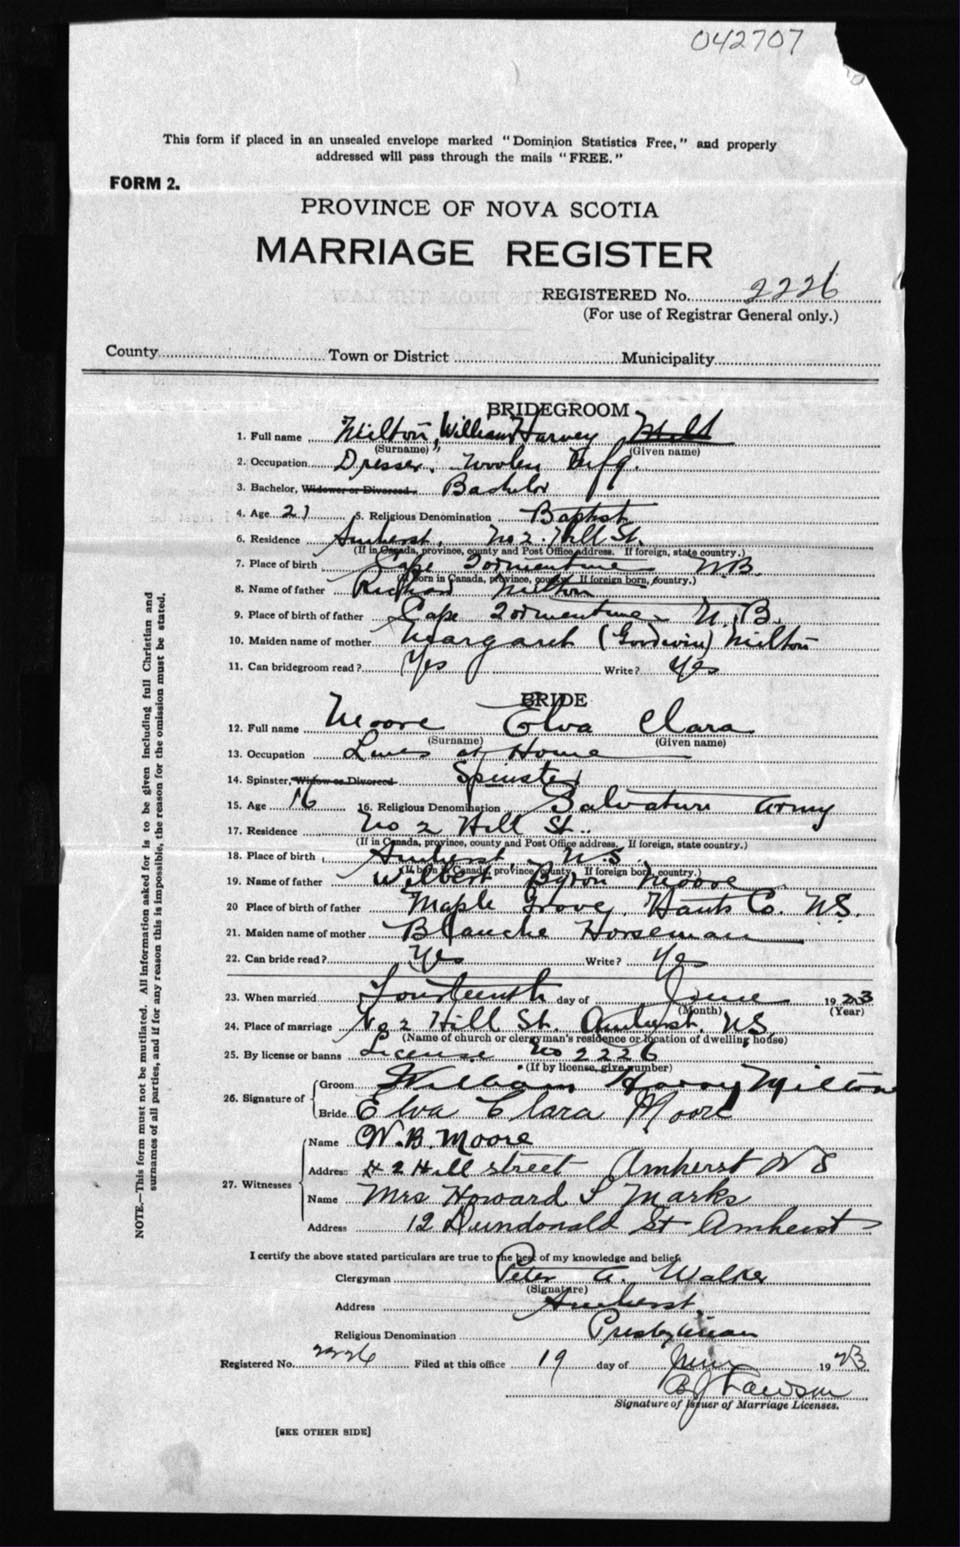 042707
This form if placed in an unsealed envelope marked "Dominion Statistics Free," and properly
addressed will pass through the mails "FREE."
FORM 2.
PROVINCE OF NOVA SCOTIA
MARRIAGE REGISTER
REGISTERED No. 2226
(For use of Registrar General only.)
County Town or District Municipality
BRIDEGROOM
1. Full name Milton, William Harvey
(Surname) (Given name)
2. Occupation Dresser, Woolen Mfg.
3. Bachelor, Widower or Divorced Bachelor
4. Age 21 5. Religious Denomination Baptist
6. Residence Amherst, No 2. Hill St.
(If in Canada, province, county and Post Office address. If foreign, state country.)
7. Place of birth Cape Tormentine N.B.
(If born in Canada, province, county. If foreign born, country.)
8. Name of father Richard Milton
9. Place of birth of father Cape Tormentine N.B.
10. Maiden name of mother Margaret (Goodwin) Milton
11. Can bridegroom read? Yes Write? Yes
BRIDE
12. Full name Moore Elva Clara
(Surname) (Given name)
13. Occupation Lives at Home
14. Spinster, Widow or Divorced Spinster
15. Age 16 16. Religious Denomination Salvation Army
17. Residence No 2 Hill St.
(If in Canada, province, county and Post Office address. If foreign, state country.)
18. Place of birth Amherst, N.S.
(If born in Canada, province, county. If foreign born, country.)
19. Name of father Wilbert Byron Moore
20 Place of birth of father Maple Grove, Hants Co. N.S.
21. Maiden name of mother Blanche Horseman
22. Can bride read? Yes Write? Yes
23. When married Fourteenth day of June 1923
(Month) (Year)
24. Place of marriage No 2 Hill St. Amherst. N.S.
(Name of church or clergyman's residence or location of dwelling house)
25. By license or banns License No 2226
(If by license, give number)
26. Signature of Groom William Harvey Milton
Bride Elva Clara Moore
27. Witnesses Name W. B. Moore
Address # 2 Hill street Amherst N S
Name Mrs Howard S Marks
Address 12 Dundonald St Amherst
I certify the above stated particulars are true to the best of my knowledge and belief.
Clergyman Peter A. Walker
(Signature)
Address Amherst,
Religious Denomination Presbyterian
Registered No. 2226 Filed at this office 19 day of June 1923
Lawson
Signature of Issuer of Marriage Licenses.
[SEE OTHER SIDE]
NOTE.—This form must not be mutilated. All information asked for is to be given including full Christian and
surnames of all parties, and if for any reason this is impossible, the reason for the omission must be stated.